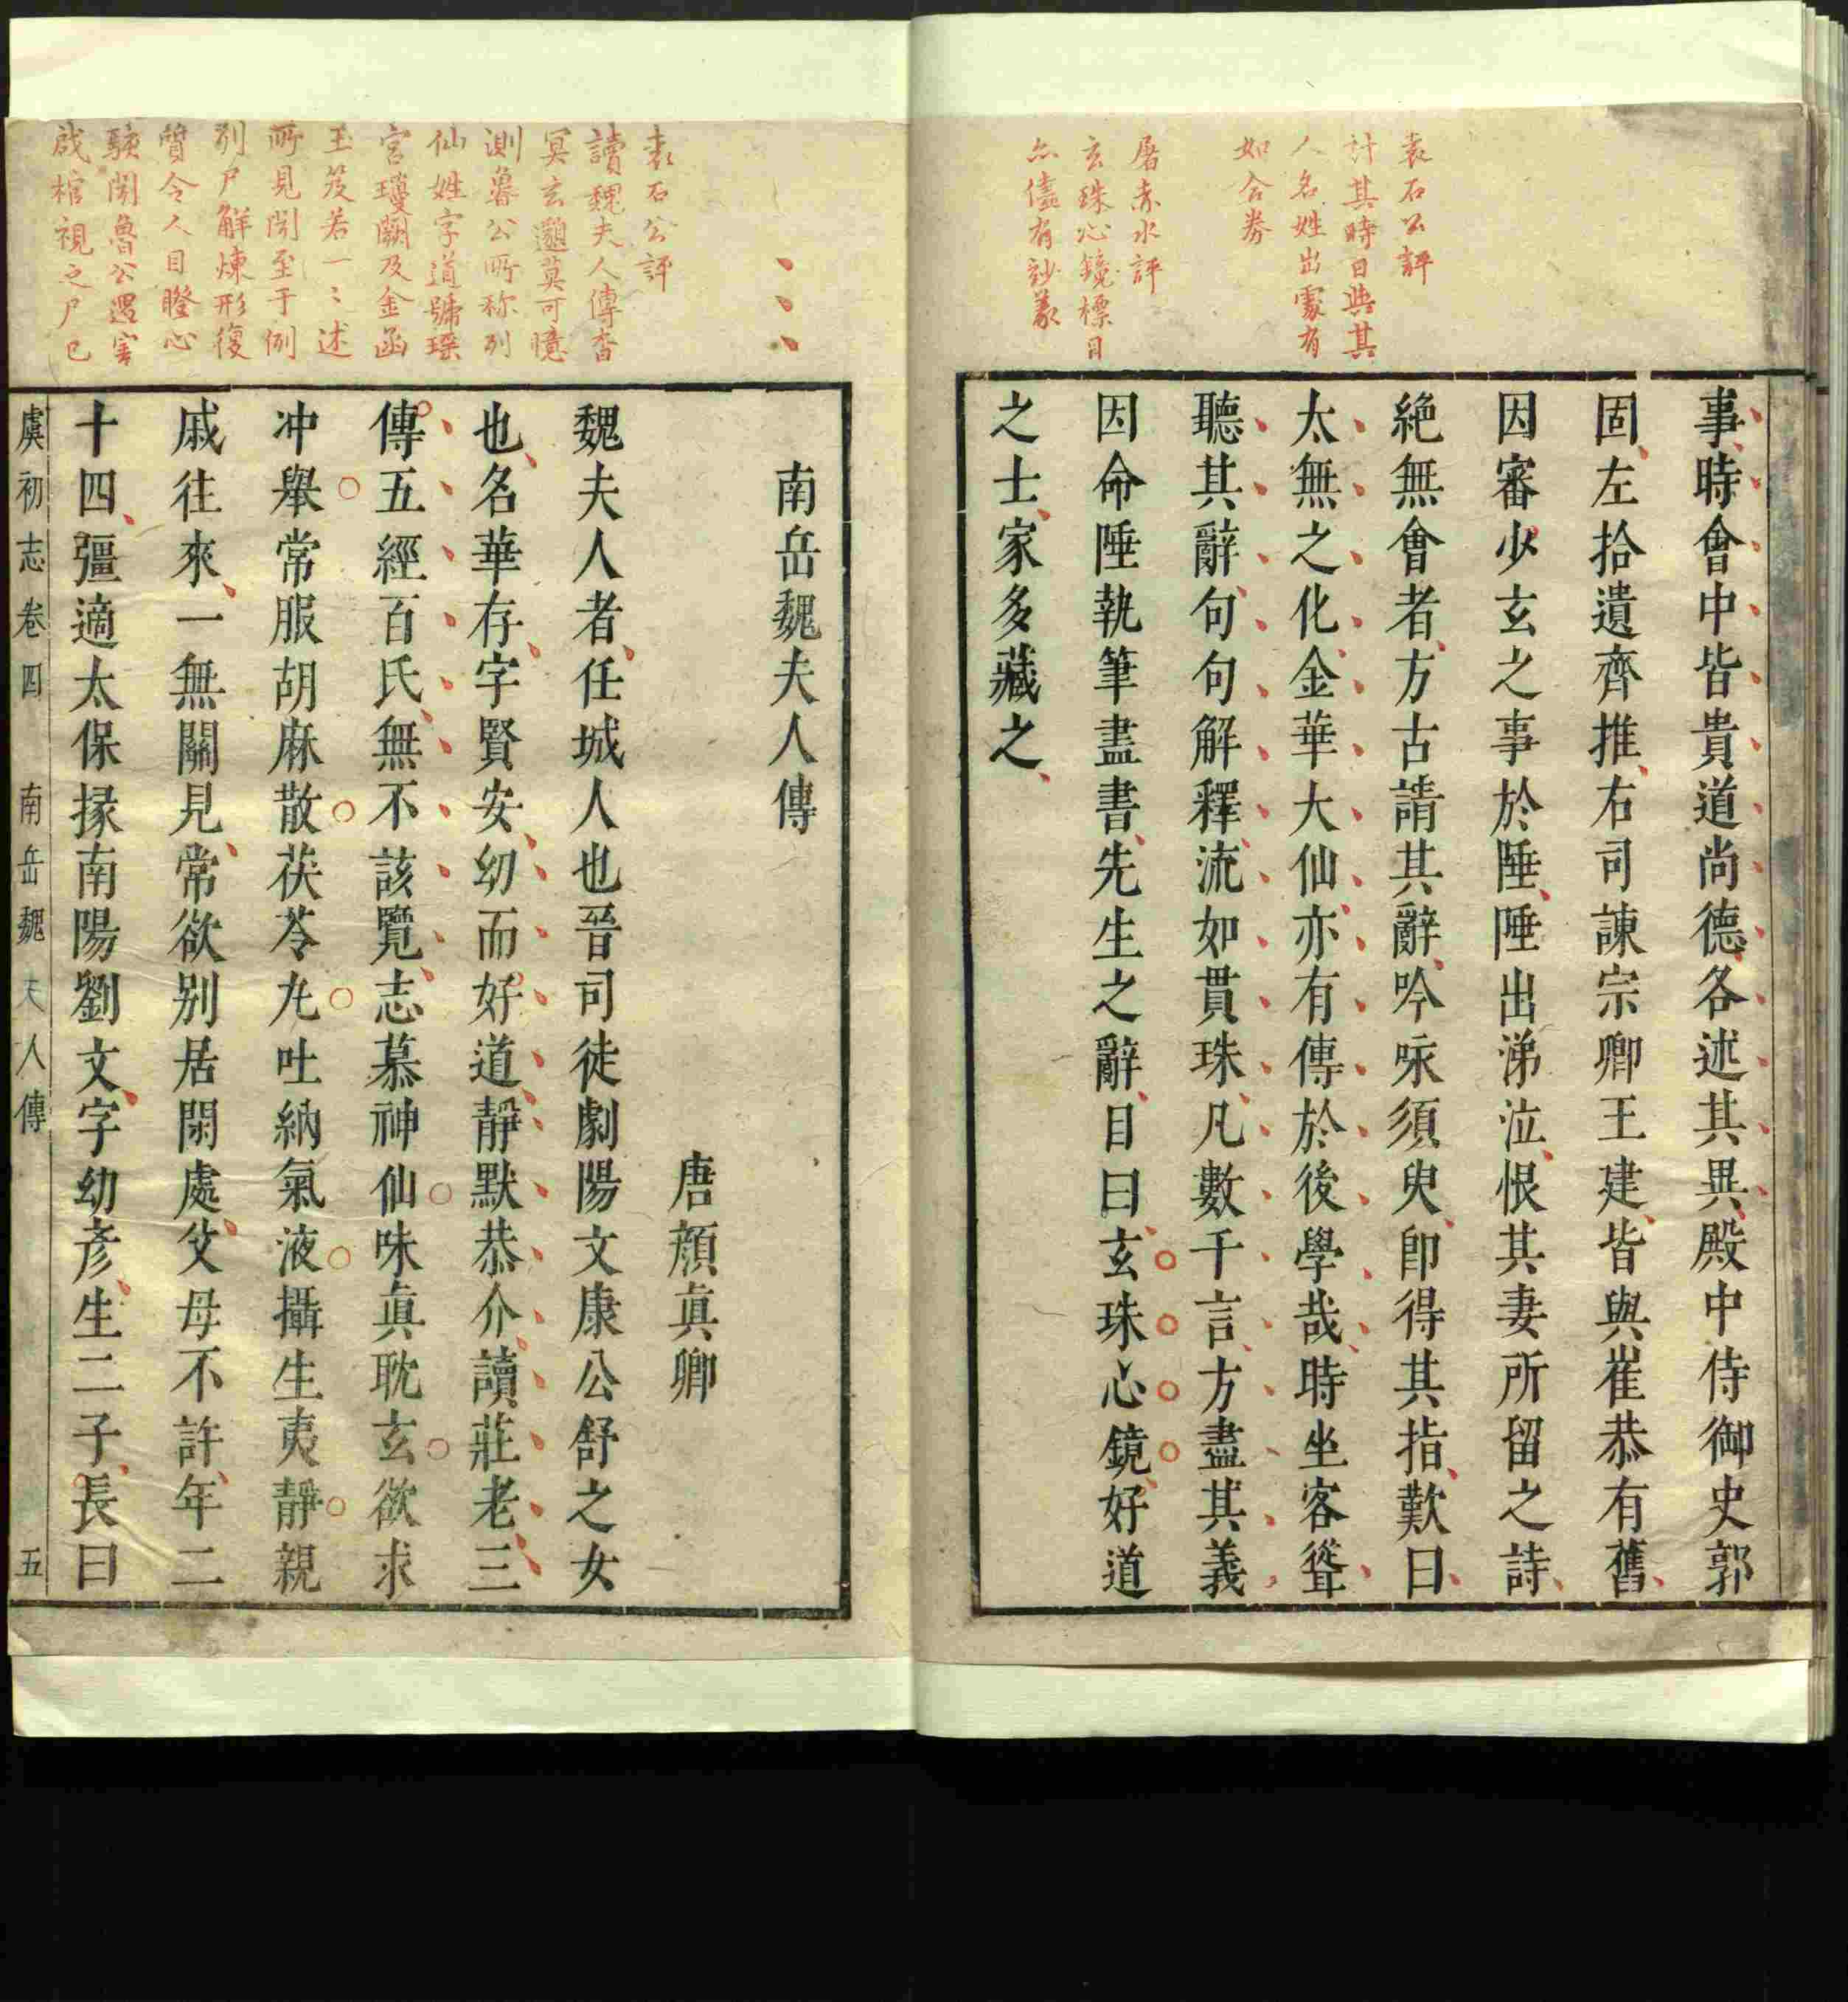 袁石公評
計其時日與其
人名姓出處有
如合券
屠赤水評
玄珠心鏡標目
亦儘有玅義
事時會中皆貴道尚德各述其異殿中侍御史郭
固左拾遺齊推右司諫宗卿王建皆與崔恭有舊
因審少玄之事於陲陲出涕泣恨其妻所留之詩
絶無會者方古請其辭吟咏須臾即得其指歎曰
太無之化金華大仙亦有傳於後學哉時坐客聳
聽其辭句句解釋流如貫珠凡數千言方盡其義
因命陲執筆盡書先生之辭目曰玄珠心鏡好道
之士家多藏之
袁石公評
讀魏夫人傳杳
冥玄邈莫可憶
測魯公所称列
仙姓字道號琛
宮瓊闕及金函
玉笈若一〻述
所見聞至于例
别尸解煉形復
質令人目瞪心
駭聞魯公遇害
啟棺視之尸已
南岳魏夫人傳
唐顔眞卿
魏夫人者任城人也晉司徒劇陽文康公舒之女
也名華存字賢安幼而好道靜默恭介讀莊老三
傳五經百氏無不該覽志慕神仙味眞耽玄欲求
冲舉常服胡麻散茯苓丸吐納氣液攝生夷靜親
戚往來一無關見常欲别居閑處父母不許年二
十四彊適太保掾南陽劉文字幼彥生二子長曰
虞初志卷四 南岳魏夫人傳 五